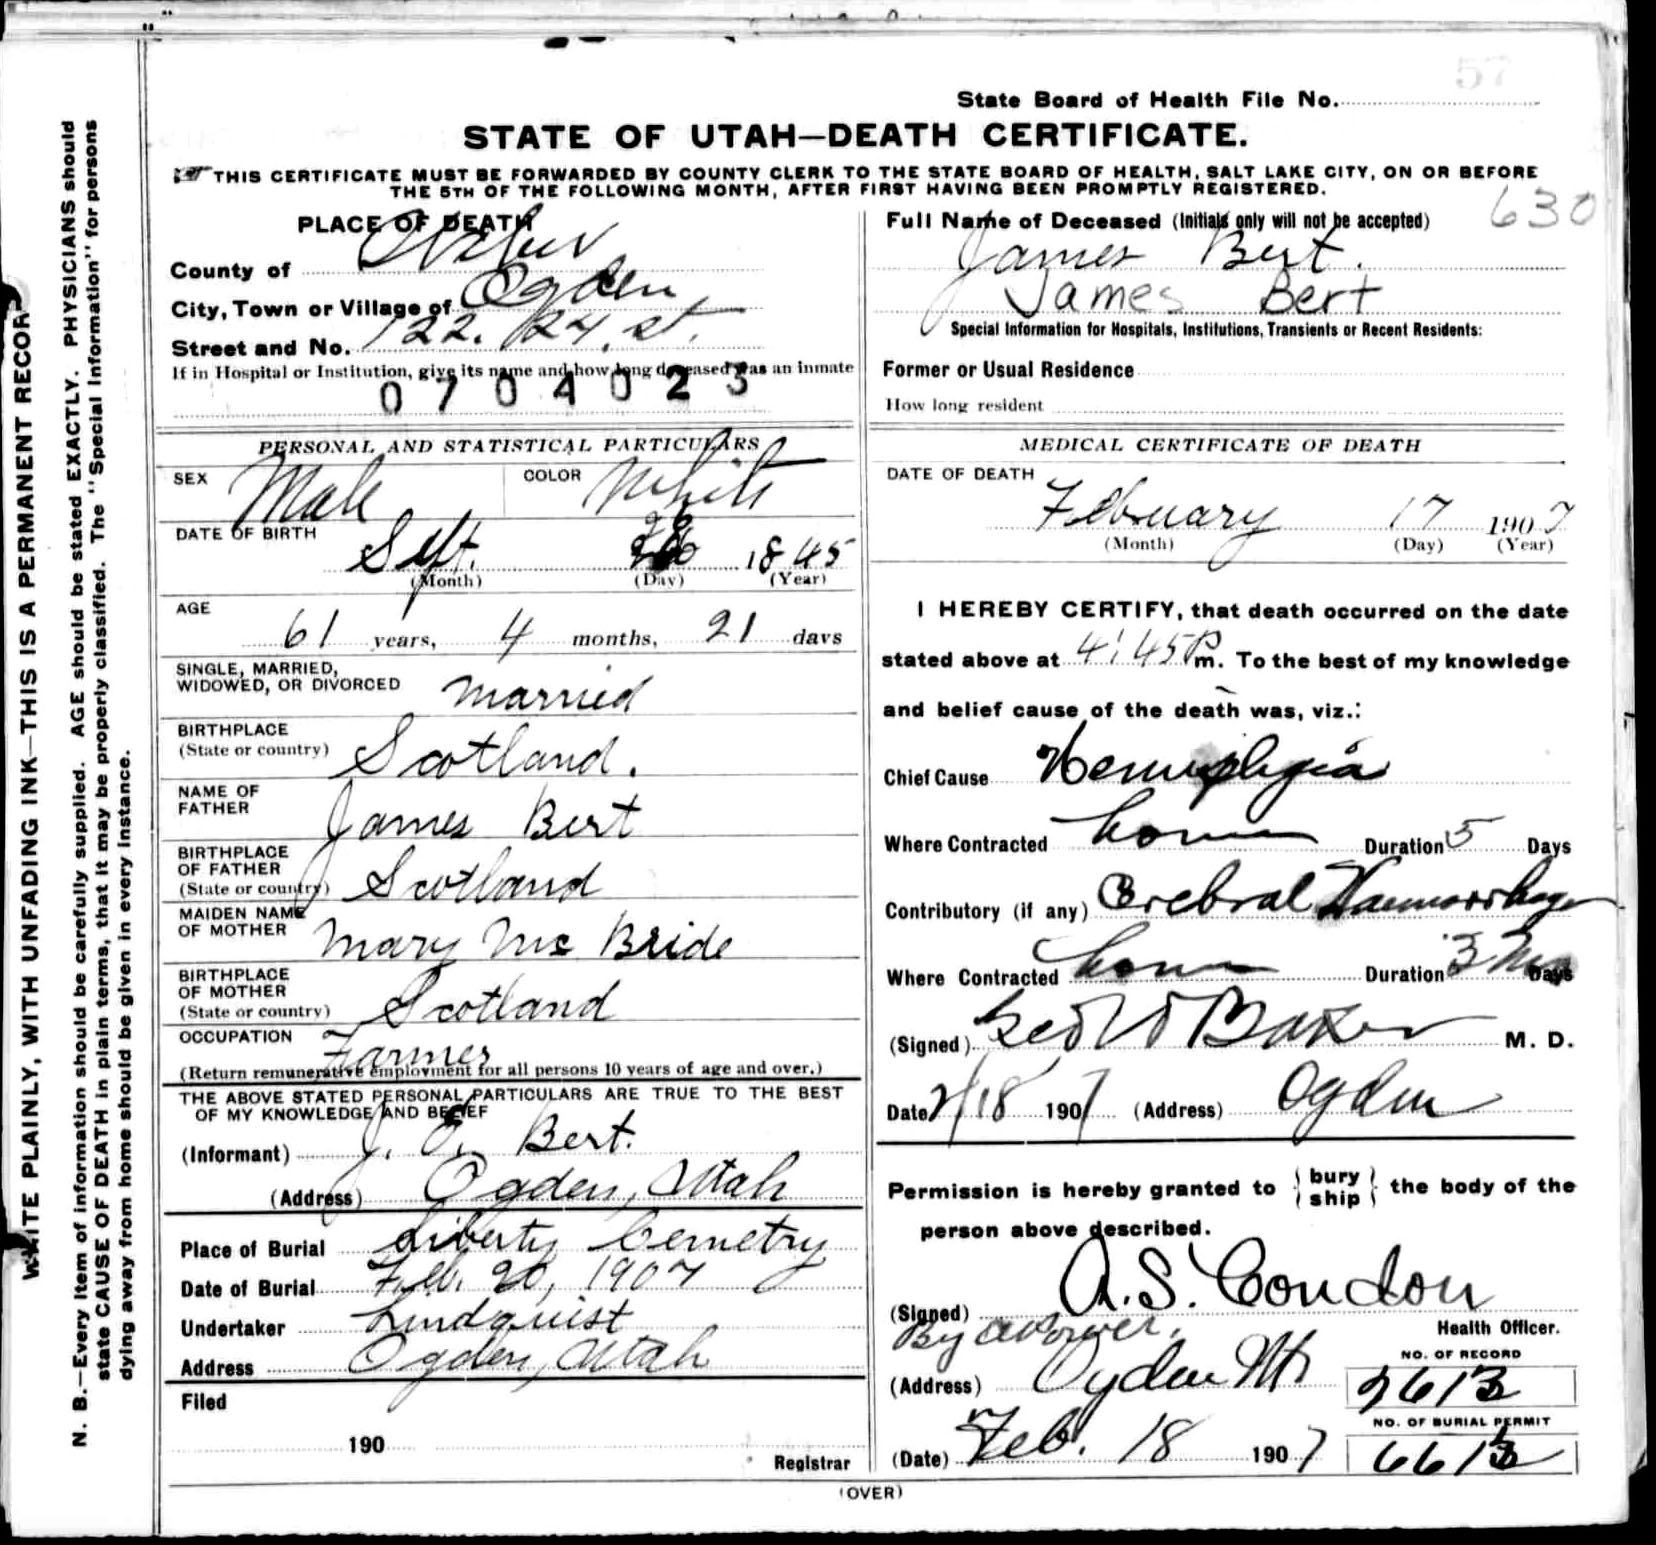 57
State Board of Health File No.
STATE OF UTAH—DEATH CERTIFICATE.
THIS CERTIFICATE MUST BE FORWARDED BY COUNTY CLERK TO THE STATE BOARD OF HEALTH, SALT LAKE CITY, ON OR BEFORE
THE 5TH OF THE FOLLOWING MONTH, AFTER FIRST HAVING BEEN PROMPTLY REGISTERED.
630
PLACE OF DEATH
County of Weber
City, Town or Village of Ogden,
Street and No. 122. 24. st.
If in Hospital or Institution, give its name and how long deceased was an inmate
0704023
Full Name of Deceased (Initials only will not be accepted)
James Bert.
James Bert
Special Information for Hospitals, Institutions, Transients or Recent Residents:
Former or Usual Residence
How long resident
PERSONAL AND STATISTICAL PARTICULARS
SEX Male COLOR White
DATE OF BIRTH Sept. 26 1845
(Month) (Day) (Year)
AGE
61 years, 4 months, 21 days
SINGLE, MARRIED,
WIDOWED, OR DIVORCED married
BIRTHPLACE
(State or country) Scotland.
NAME OF
FATHER James Bert
BIRTHPLACE
OF FATHER
(State or country) Scotland
MAIDEN NAME
OF MOTHER Mary Mc Bride
BIRTHPLACE
OF MOTHER
(State or country) Scotland
OCCUPATION Farmer
(Return remunerative employment for all persons 10 years of age and over.)
THE ABOVE STATED PERSONAL PARTICULARS ARE TRUE TO THE BEST
OF MY KNOWLEDGE AND BELIEF
(Informant) J. E. Bert.
(Address) Ogden, Utah
Place of Burial Liberty Cemetry
Date of Burial Feb. 20, 1907
Undertaker Lindquist
Address Ogden, Utah
Filed
190
Registrar
MEDICAL CERTIFICATE OF DEATH
DATE OF DEATH
February 17 1907
(Month) (Day) (Year)
I HEREBY CERTIFY, that death occurred on the date
stated above at 4:45 P m. To the best of my knowledge
and belief cause of the death was, viz.:
Chief Cause Hemiplegia
Where Contracted home Duration 5 Days
Contributory (if any) Cerebral Haemorrhage
Where Contracted home Duration 3 Days
(Signed) Geo W Baker M. D.
Date 2/18 1907 (Address) Ogden
Permission is hereby granted to { bury
ship } the body of the
person above described.
(Signed) A. S. Condon
Health Officer.
By
(Address) Ogden Ut
NO. OF RECORD
2613
NO. OF BURIAL PERMIT
6613
(Date) Feb. 18 1907
(OVER)
WRITE PLAINLY, WITH UNFADING INK—THIS IS A PERMANENT RECORD
N. B.—Every item of information should be carefully supplied. AGE should be stated EXACTLY. PHYSICIANS should
state CAUSE OF DEATH in plain terms, that it may be properly classified. The "Special Information" for persons
dying away from home should be given in every instance.